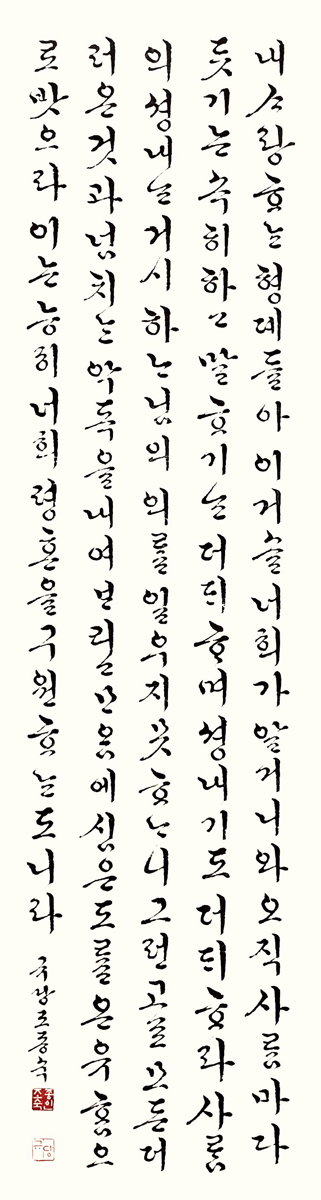 내ᄉᆞ랑ᄒᆞᄂᆞᆫ형뎨들아이거슬너희가알거니와오직사ᄅᆞᆷ마다
듯기는속히하고말ᄒᆞ기ᄂᆞᆫ더듸ᄒᆞ며셩내기도더듸ᄒᆞ라사ᄅᆞᆷ
의셩내ᄂᆞᆫ거시하ᄂᆞ님의의를일우지못ᄒᆞᄂᆞ니그런고로모든더
러온것과넘치ᄂᆞᆫ악독을내여ᄇᆞ리고ᄆᆞ음에심은도를온유홈으
로밧으라이는능히너희령혼을구원ᄒᆞᄂᆞᆫ도니라
국당조종숙